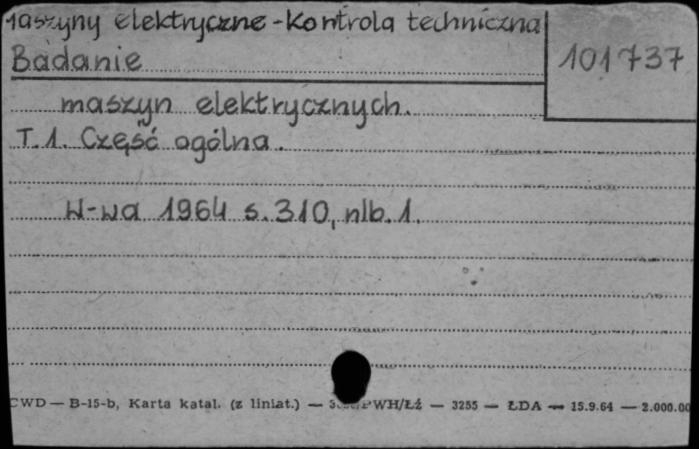 Maszyny elektryczne - Kontrola techniczna
Badanie
101737
maszyn elektrycznych.
T.1. Część ogólna.
W-wa 1964 s. 310, nlb. 1.
CWD — B-15-b, Karta katal. (z liniat.) — PWH/Łź — 3255 — ŁDA — 15.9.64 — 2.000.00